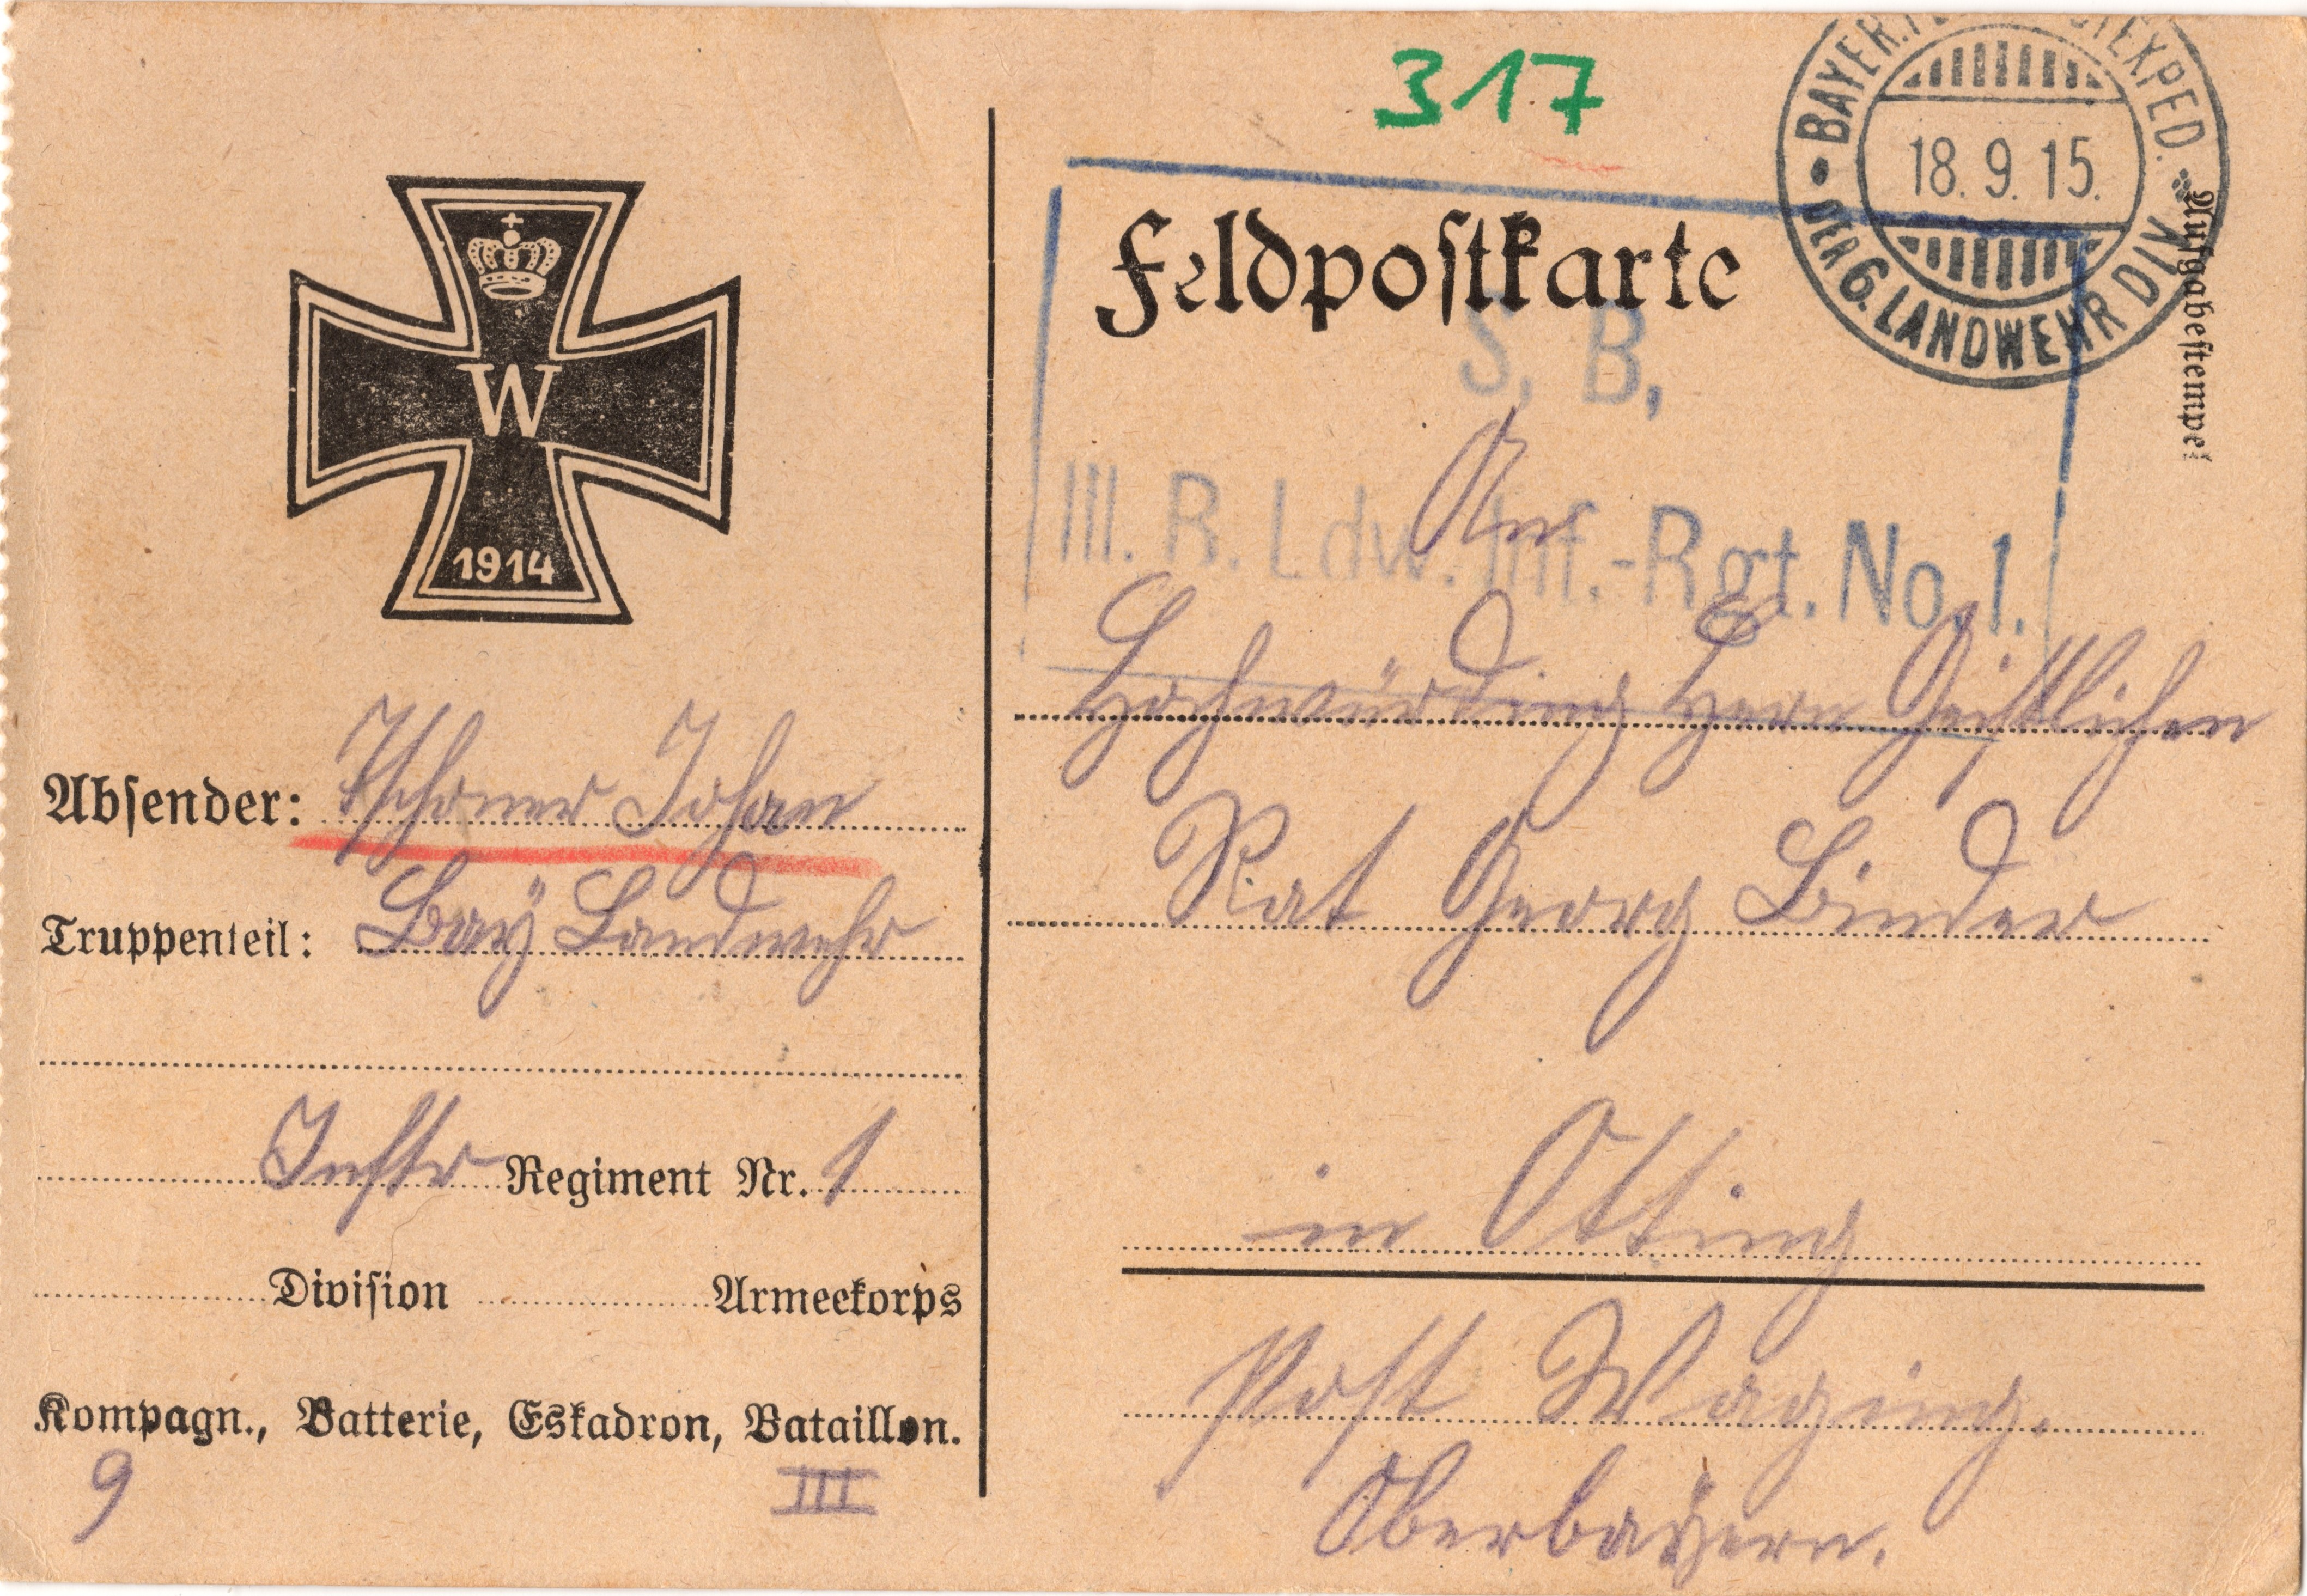 W
1914
Absender: Tschoner Johan
Truppenteil: Bay Landwehr
Inftr Regiment Nr. 1
Division Armeekorps
Kompagn., Batterie, Eskadron, Bataillon.
9 III
317
BAYER. EXPED.
18. 9. 15.
DER 6. LANDWEHR DIV.
Feldpostkarte
Aufgabestempel
S. B.
III. B. Ldw. Inf.-Rgt. No. 1.
An
Hochwürding Herrn Geistlichen
Rat Georg Binder
in Otting
Post Waging.
Oberbayern.